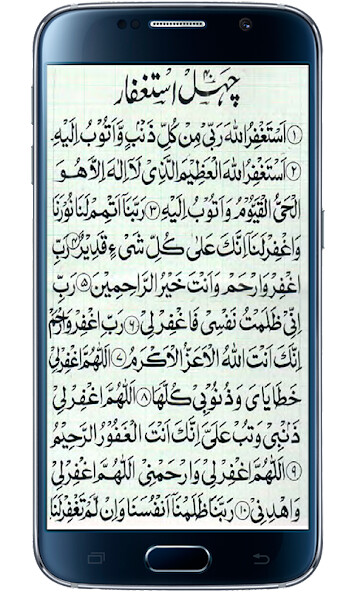 چہل ۴۰ استغفار
① اَسْتَغْفِرُ اللهَ رَبِّیْ مِنْ کُلِّ ذَنْبٍ وَّاَتُوْبُ اِلَیْهِ
② اَسْتَغْفِرُ اللهَ الْعَظِیْمَ الَّذِیْ لَآ اِلٰهَ اِلَّا هُوَ
الْحَیُّ الْقَیُّوْمُ وَاَتُوْبُ اِلَیْهِ ③ رَبَّنَا اَتْمِمْ لَنَا نُوْرَنَا
وَاغْفِرْ لَنَا اِنَّکَ عَلٰی کُلِّ شَیْءٍ قَدِیْرٌ ④ رَبِّ
اغْفِرْ وَارْحَمْ وَاَنْتَ خَیْرُ الرَّاحِمِیْنَ ⑤ رَبِّ
اِنِّیْ ظَلَمْتُ نَفْسِیْ فَاغْفِرْ لِیْ ⑥ رَبِّ اغْفِرْ وَارْحَمْ
اِنَّکَ اَنْتَ اللهُ الْاَعَزُّ الْاَکْرَمُ ⑦ اَللّٰهُمَّ اغْفِرْ لِیْ
خَطَایَایَ وَ ذُنُوْبِیْ کُلَّهَا ⑧ اَللّٰهُمَّ اغْفِرْ لِیْ
ذَنْبِیْ وَتُبْ عَلَیَّ اِنَّکَ اَنْتَ الْغَفُوْرُ الرَّحِیْمُ
⑨ اَللّٰهُمَّ اغْفِرْ لِیْ وَارْحَمْنِیْ اَللّٰهُمَّ اغْفِرْ لِیْ
وَاهْدِنِیْ ⑩ رَبَّنَا ظَلَمْنَا اَنْفُسَنَا وَاِنْ لَّمْ تَغْفِرْ لَنَا